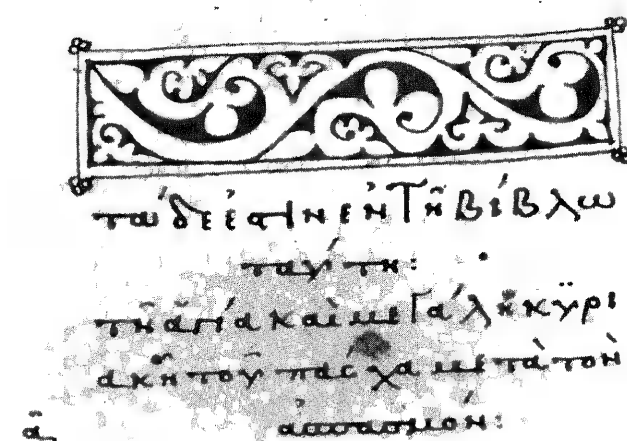 τάδε ἐστὶν ἐν τῆ βίβλω
ταύτη:
τῆ ἁγία καὶ μεγάλη κυρι
ακῆ τοῦ πάσχα μετὰ τὸν
ἀσπασμόν:
α